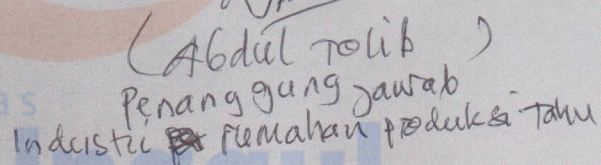 (Abdul Tolib)
Penanggung Jawab
Industri Rumahan Produksi Tahu